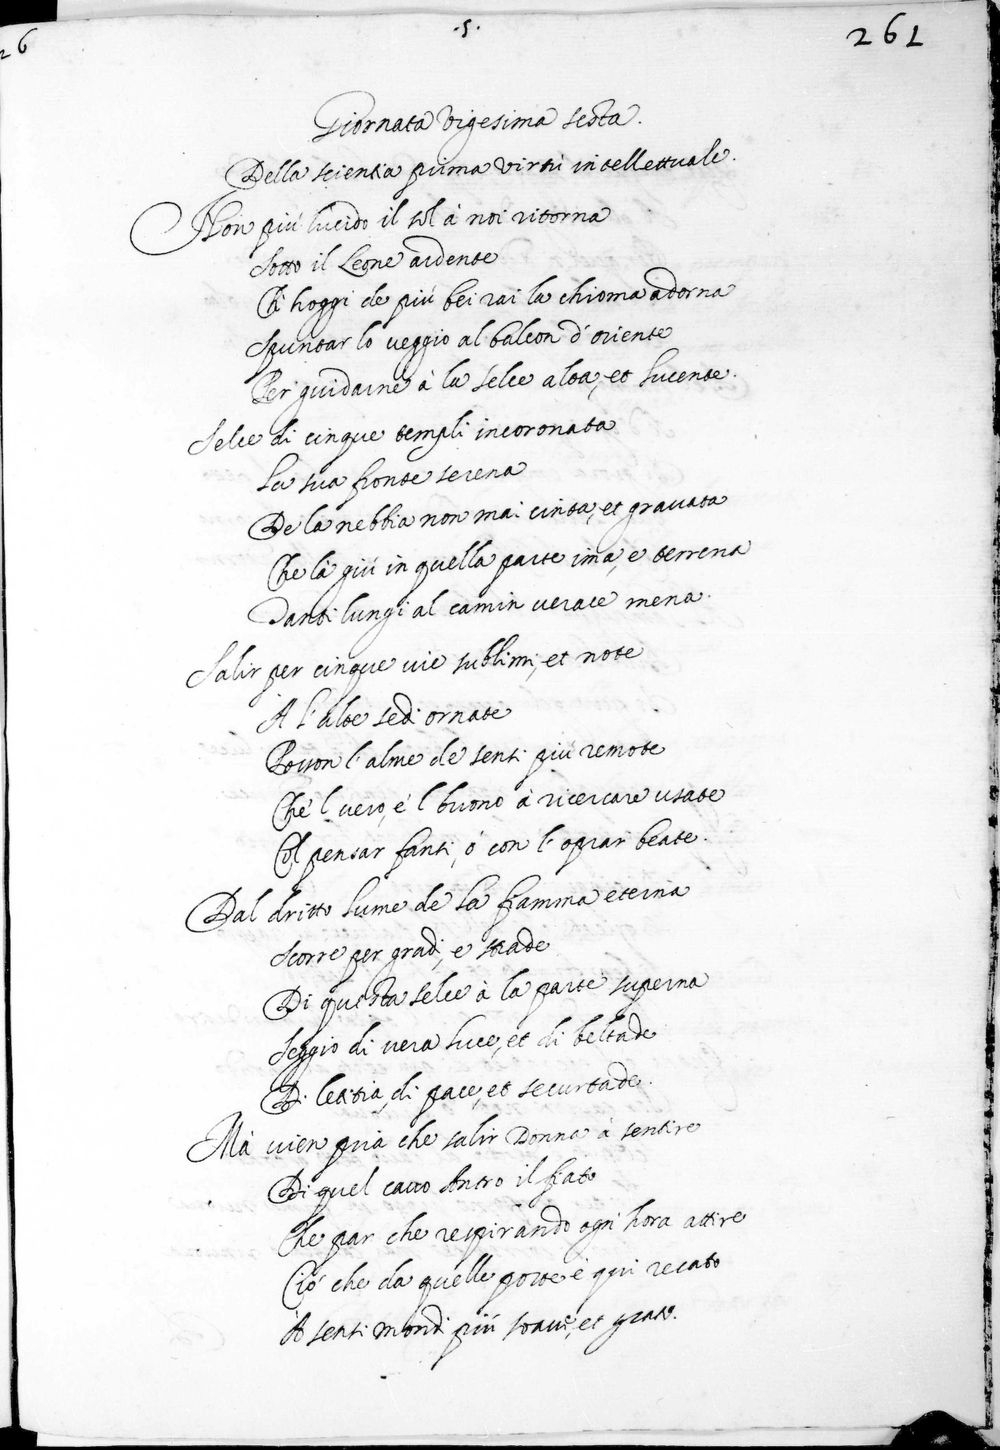 26
.5.
261
Giornata vigesima sesta.
Della scientia prima virtù intellettuale.
Non più lucido il sol à noi ritorna
Sotto il Leone ardente
Ch' hoggi de più bei rai la chioma adorna
Spuntar lo veggio al balcon d' oriente
Per guidarne à la selce alta, et lucente.
Selce di cinque templi incoronata
La sua fronte serena
De la nebbia non mai cinta, et gravata
Che là giù in quella parte ima, e terrena
Tanti lungi al camin verace mena.
Salir per cinque vie sublimi, et note
A l' alte sedi ornate
Posson l' alme de' sensi più remote
Che 'l vero, e 'l buono à ricercare usate
Col pensar santi, ò con l' oprar beate.
Dal dritto lume de la fiamma eterna
Scorre per gradi, e strade
Di questa selce à la parte superna
Seggio di vera luce, et di beltade
Di letitia, di pace, et securtade.
Mà vien prià che salir Donna à sentire
Di quel cavo Antro il fiato
Che par che respirando ogni hora attire
Ciò che da quelle porte è qui recato
A sensi mondi più soave, et grato.